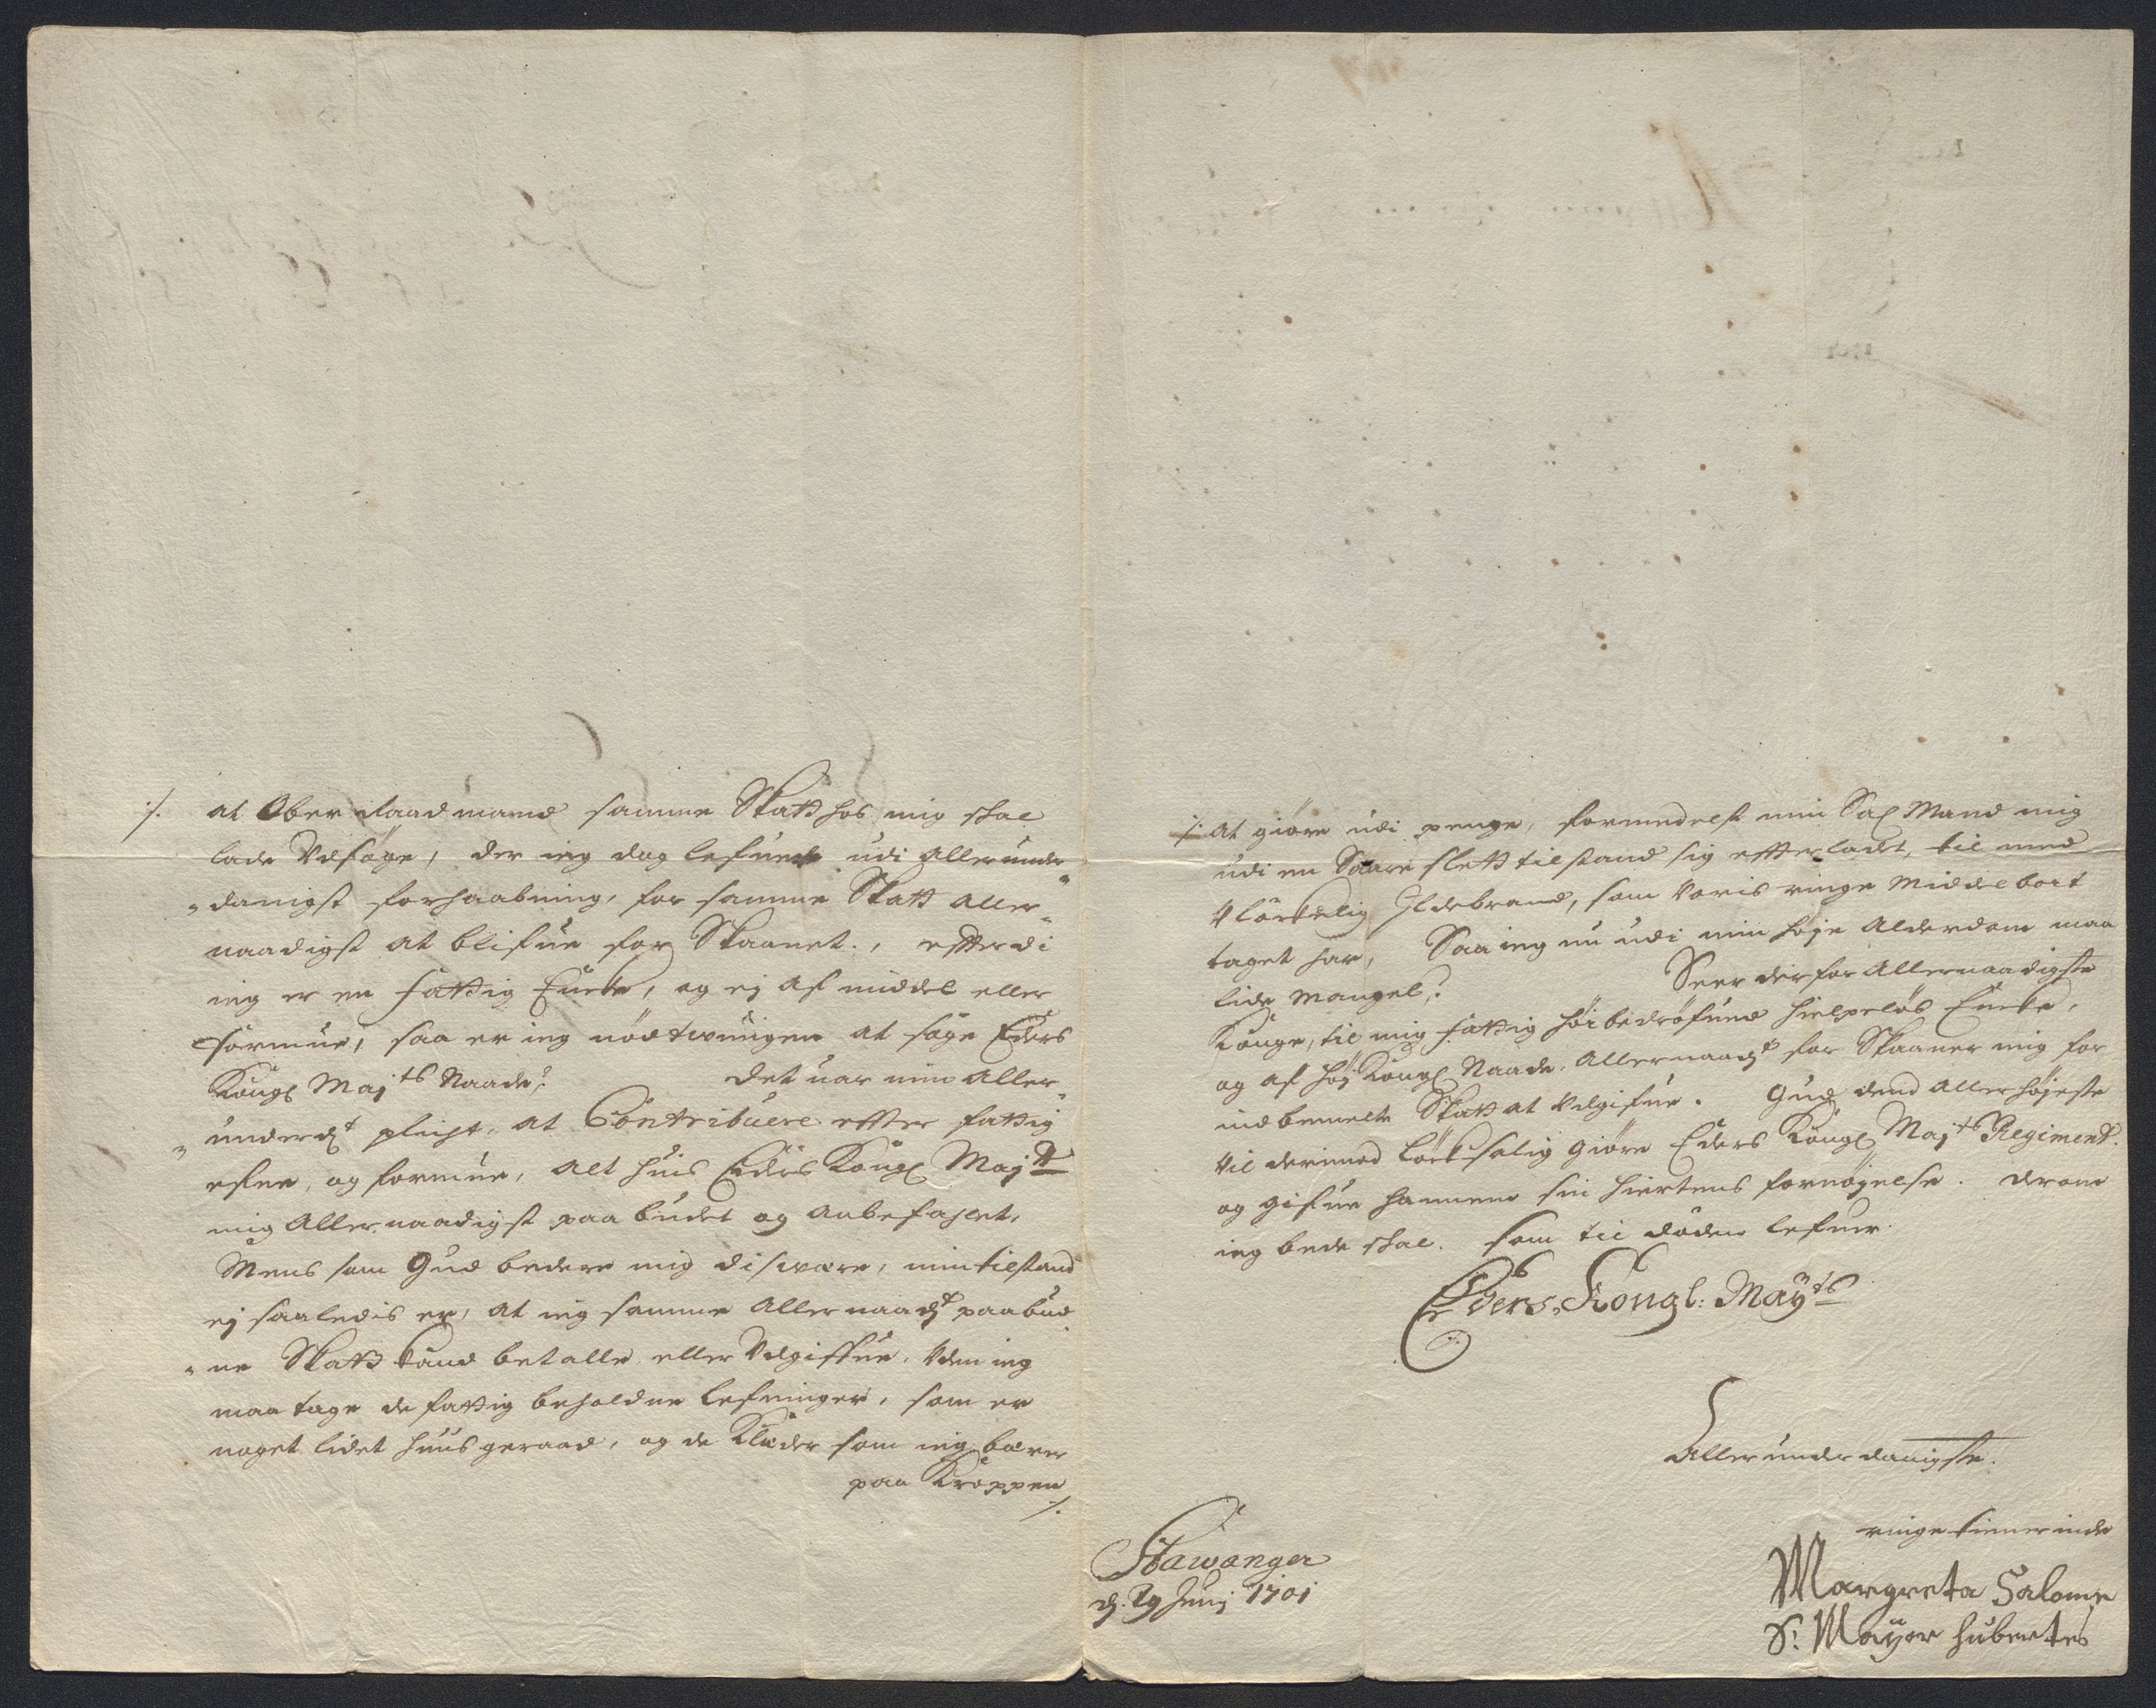 ./. at Ober Raadmand samme Skatt hos mig skal
lade Vdsöge, der ieg dog lefuede udi allerunder
„danigst forhaabning, for samme Skatt Aller„
naadigst at blifue for Skaanet., efterdi
ieg er en fattig Encke, og ej af middel eller
formue, saa er ieg nödtwungen at söge Eders
Kongl Majts Naade? Det uar min Aller„
„underdt pligt, at Contribuere effter fattig
efne, og formue, alt huis Eders Kongl Majtt
mig Allernaadigst paabudet og anbefahlet,
Mens som Gud bedere mig diswære, min tilstand
ej saaledis er, at ieg samme Allernaadt paabud
„ne Skatt kand betalle eller Vdgiffue, Vden ieg
maa tage de fattig beholdne lefninger, som er
noget lidet huusgeraad, og de Klæder som ieg bærer
paa Kroppen
./.
./. at giöre udi penge, formedelst min Sal Mand mig
udi en Saare slett tilstand sig effterladt, til med
Vlöckelig Ildebrand, som Voris ringe Middel bort
taget har, Saa ieg nu udi min höje Alderdom maa
lide Mangel? Seer derfor Allernaadigste
Konge, til mig fattig höibedröfuede hielpelös Encke,
og af höj Kongl Naade, Allernaadt for Skaaner mig for
indbemelte Skatt at Vdgifue. Gud dend Allerhöjeste
Vil derimod löcksalig Giöre Eders Kongl Majts Regiment.
og gifue hannem sin hiertens fornöjelse. derom
ieg bede skal. som til döden lefuer.
Eders Kongl: Mayts
Allerunderdanigste.
ringe tienerinde
Margreta Salome
S: Mayor Huberts
Stawanger
d. 29 Junj 1701